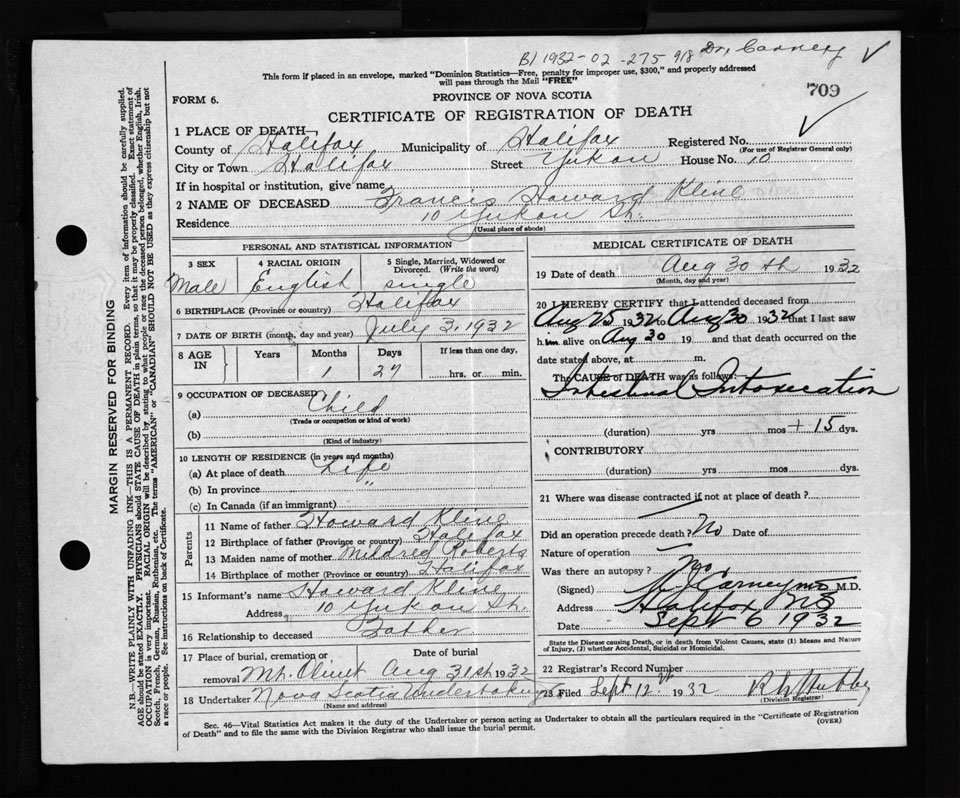 B) 1932-02-275 918 Dr. Carney ✓
This form if placed in an envelope, marked "Dominion Statistics—Free, penalty for improper use, $300," and properly addressed
will pass through the Mail "FREE"
709
FORM 6.
PROVINCE OF NOVA SCOTIA
CERTIFICATE OF REGISTRATION OF DEATH
1 PLACE OF DEATH—
County of Halifax Municipality of Halifax Registered No. ✓
(For use of Registrar General only)
City or Town Halifax Street Yukon House No. 10
If in hospital or institution, give name
2 NAME OF DECEASED Francis Howard Kline
Residence 10 Yukon St.
(Usual place of abode)
PERSONAL AND STATISTICAL INFORMATION
3 SEX 4 RACIAL ORIGIN 5 Single, Married, Widowed or
Divorced. (Write the word)
Male English single
6 BIRTHPLACE (Province or country) Halifax
7 DATE OF BIRTH (month, day and year) July 3, 1932
8 AGE IN Years Months Days If less than one day,
1 27 hrs. or min.
9 OCCUPATION OF DECEASED
(a) Child
(Trade or occupation or kind of work)
(b)
(Kind of industry)
10 LENGTH OF RESIDENCE (in years and months)
(a) At place of death Life
(b) In province "
(c) In Canada (if an immigrant)
Parents
11 Name of father Howard Kline
12 Birthplace of father (Province or country) Halifax
13 Maiden name of mother Mildred Roberts
14 Birthplace of mother (Province or country) Halifax
15 Informant's name Howard Kline
Address 10 Yukon St.
16 Relationship to deceased Father
17 Place of burial, cremation or Date of burial
removal Mt. Olivet Aug 31st 1932
18 Undertaker Nova Scotia Undertaking
(Name and address)
MEDICAL CERTIFICATE OF DEATH
19 Date of death Aug 30th 1932
(Month, day and year)
20 I HEREBY CERTIFY that I attended deceased from
Aug 25 1932 Aug 30 1932 that I last saw
h im alive on Aug 30 19 and that death occurred on the
date stated above, at m.
The CAUSE of DEATH was as follows:
Intestinal Intoxication
(duration) yrs mos + 15 dys.
CONTRIBUTORY
(duration) yrs mos dys.
21 Where was disease contracted if not at place of death?
—
Did an operation precede death? No Date of
Nature of operation —
Was there an autopsy? No
(Signed) Carney MD M.D.
Address Halifax NS
Date Sept 6 1932
State the Disease causing Death, or in death from Violent Causes, state (1) Means and Nature
of Injury, (2) whether Accidental, Suicidal or Homicidal.
22 Registrar's Record Number
23 Filed Sept 12th 1932
(Division Registrar)
Sec. 46—Vital Statistics Act makes it the duty of the Undertaker or person acting as Undertaker to obtain all the particulars required in the "Certificate of Registration
of Death" and to file the same with the Division Registrar who shall issue the burial permit. (OVER)
MARGIN RESERVED FOR BINDING
N.B.—WRITE PLAINLY WITH UNFADING INK—THIS IS A PERMANENT RECORD. Every item of information should be carefully supplied.
AGE should be stated EXACTLY. PHYSICIANS should STATE CAUSE OF DEATH in plain terms, so that it may be properly classified. Exact statement of
OCCUPATION is very important. RACIAL ORIGIN will be described by stating to what people or race the deceased person belonged, whether English, Irish,
Scotch, French, German, Russian, Ruthenian, etc. The terms "AMERICAN" or "CANADIAN" SHOULD NOT BE USED as they express citizenship but not
a race or people. See instructions on back of Certificate.